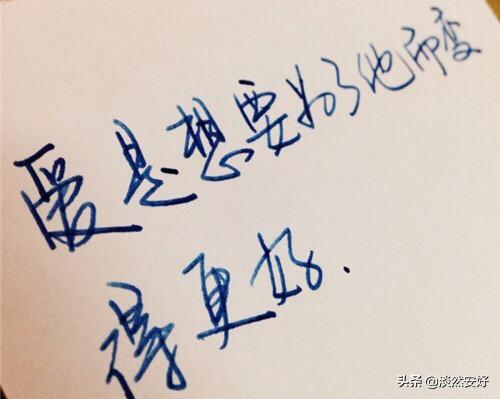 爱是想要为了他而变
得更好.
头条 @淡然安好